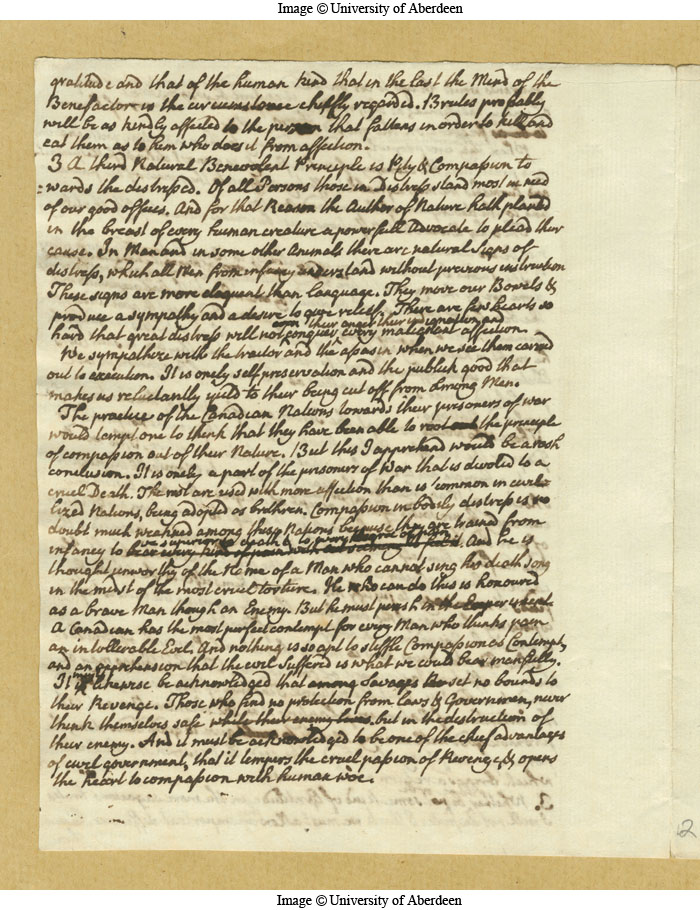 Image © University of Aberdeen
gratitude and that of the human kind that in the last the Mind of the
Benefactor is the circumstance chiefly regarded. Brutes probably
will be as kindly affected to the person that fattens in order to kill and
eat them as to him who does it from affection.
3 A third Natural Benevolent Principle is Pity & Compassion to
wards the distressed. Of all Persons those in Distress stand most in need
of our good offices. And for that Reason the Author of Nature hath planted
in the breast of every human creature a powerfull Advocate to plead their
cause. In Man and in some other Animals there are natural Signs of
distress, which all Men from infancy understand without previous instruction
These signs are more eloquent than language. They move our Bowels &
produce a sympathy and a desire to give relief. There are few hearts so
hard that great distress will not conquer their anger their indignation and every malignant affection.
We sympathize with the traitor and the assassin when we see them carried
out to execution. It is onely self preservation and the publick good that
makes us reluctantly yield to their being cut off from among Men.
The practice of the Canadian Nations towards their prisoners of war
would tempt one to think that they have been able to root out the principle
of compassion out of their Nature. But this I apprehend would be a rash
conclusion. It is onely a part of the prisoners of War that is devoted to a
cruel Death. The rest are used with more affection than is common in civi
lized Nations, being adopted as brethren. Compassion in bodily distress is no
doubt much weakned among these Nations because they are trained from
infancy to be superior to death & to every degree of pain. And he is
thought unworthy of the Name of a Man who cannot sing his death song
in the midst of the most cruel torture. He who can do this is honoured
as a brave Man though an Enemy. But he must perish in the
A Canadian has the most perfect contempt for every Man who thinks pain
an intollerable Evil. And nothing is so apt to stiffle Compassion as Contempt,
and an apprehension that the evil suffered is what we could bear manfully.
It must likewise be acknowledged that among Savages set no bounds to
their Revenge. Those who find no protection from laws & Government, never
think themselves safe while their enemy lives. but in the destruction of
their enemy. And it must be acknowledged to be one of the chief advantages
of civil government, that it tempers the cruel passion of Revenge, & opens
the heart to compassion with human woe.
3.
2
Image © University of Aberdeen